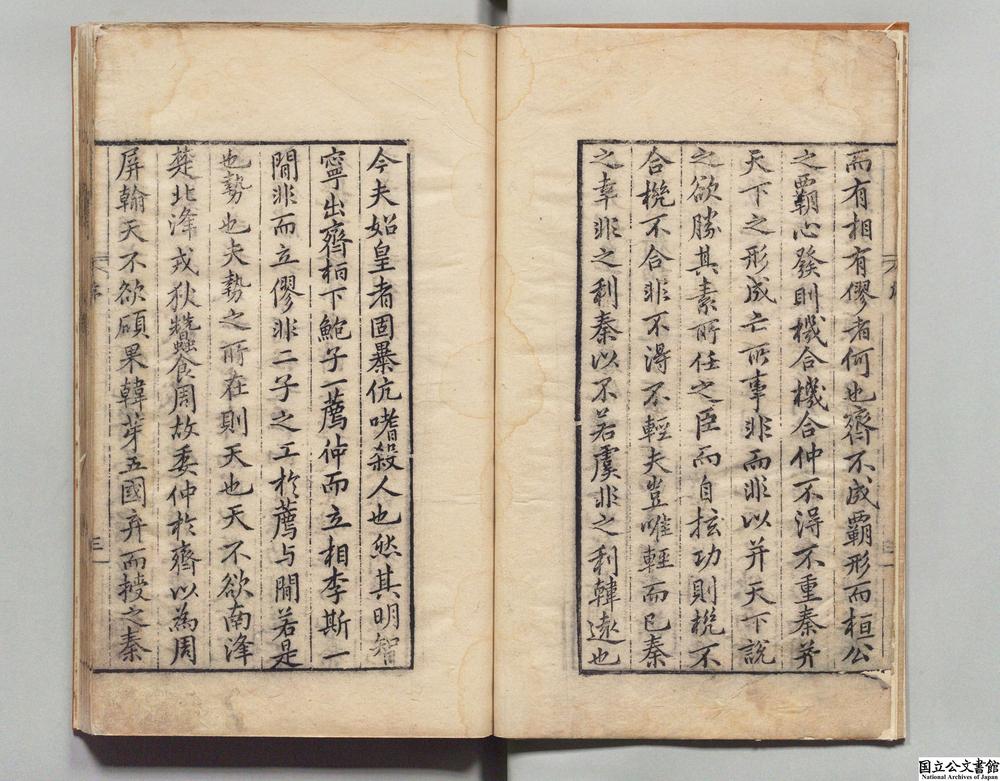 而有相有僇者何也齊不成覇形而桓公
之覇心發則機合機合仲不得不重秦并
天下之形成亡所事非而非以并天下說
之欲勝其素所任之臣而自抜功則梲不
合梲不合非不得不輕夫豈唯輕而已秦
之幸非之利秦以不若虞非之利韓遠也
今夫始皇者固暴伉嗜殺人也然其明智
寧出齊桓下鮑子一薦仲而立相李斯一
間非而立僇非二子之工於薦与間若是
也勢也夫勢之所在則天也天不欲南浲
楚北浲戎狄蠶食周故委仲於齊以為周
屏翰天不欲碩果韓芽五國弃而擭之秦
序
三
国立公文書館
National Archives of Japan